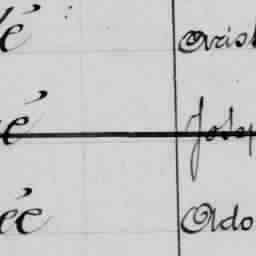 é Arist
é Josep
ée Ado